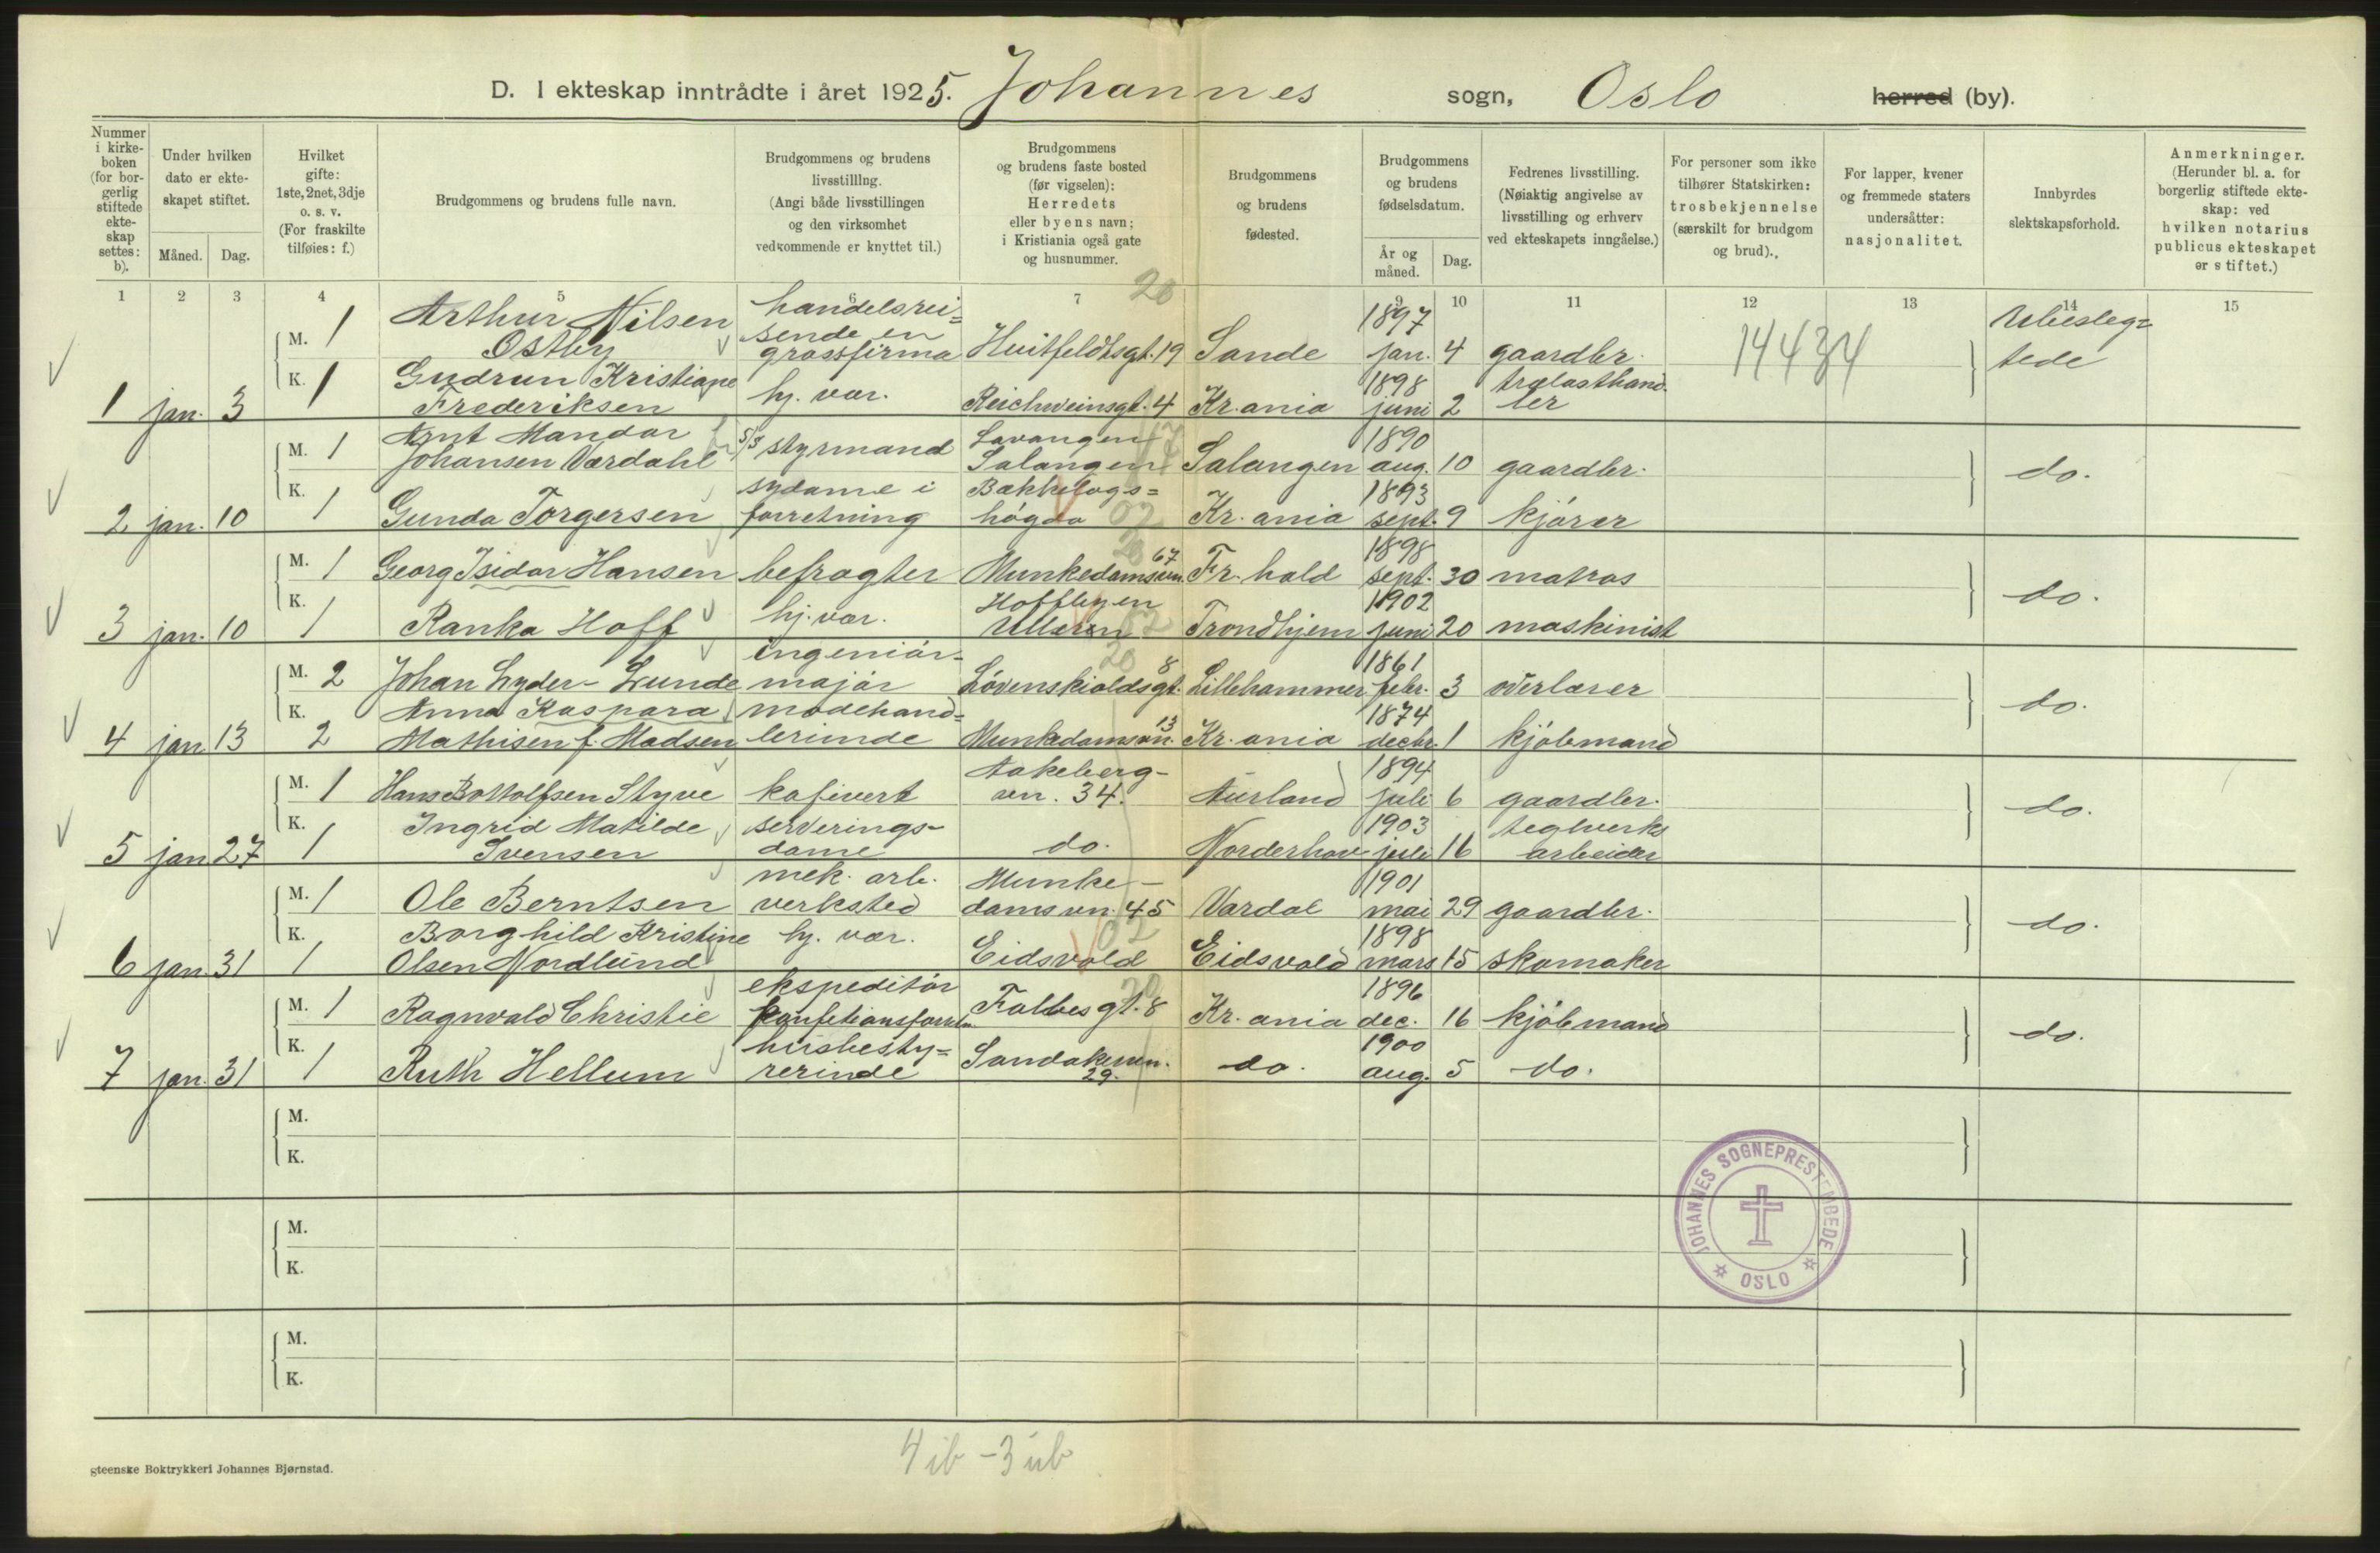 D. I ekteskap inntrådte i året 1925. Johannes sogn, Oslo herred (by).
Nummer i kirke- boken (for bor- gerlig stiftede ekte- skap settes: b).
Under hvilken dato er ekte- skapet stiftet.
Måned. Dag.
Hvilket gifte: 1ste, 2net, 3dje o. s. v. (For fraskilte tilføies: f.)
Brudgommens og brudens fulle navn.
Brudgommens og brudens livsstilling. (Angi både livsstillingen og den virksomhet vedkommende er knyttet til.)
Brudgommens og brudens faste bosted (før vigselen): Herredets eller byens navn; i Kristiania også gate og husnummer.
Brudgommens og brudens fødested.
Brudgommens og brudens fødselsdatum.
År og måned. Dag.
Fedrenes livsstilling. (Nøiaktig angivelse av livsstilling og erhverv ved ekteskapets inngåelse.)
For personer som ikke tilhører Statskirken: trosbekjennelse (særskilt for brudgom og brud).
For lapper, kvener og fremmede staters undersåtter: nasjonalitet.
Innbyrdes slektskapsforhold.
Anmerkninger. (Herunder bl. a. for borgerlig stiftede ekte- skap: ved hvilken notarius publicus ekteskapet er stiftet.)
1 2 3 4 5 6 7 9 10 11 12 13 14 15
20
M. 1 Arthur Nilsen Østby handelsrei= sende en grossfirma Huitfeldtsgt. 19 Sande 1897 jan. 4 gaardbr. 14434 Ubesleg= tede
1 jan. 3 K. 1 Gudrun Kristiane Frederiksen hj. vær. Reichweinsgt. 4 Kr.ania 1898 juni 2 trælasthand ler
M. 1 Arnt Mandor Johansen Værdahl S/S styrmand Lavangen Salangen Salangen 1890 aug. 10 gaardbr. do.
2 jan. 10 K. 1 Gunda Torgersen sydame i forretning Bækkelags= høgda 02 Kr.ania 1893 sept. 9 kjører
M. 1 Georg Isidor Hansen befragter Munkedamsvn. 67 Fr.hald 1898 sept. 30 matros do.
3 jan. 10 K. 1 Ranka Hoff hj. vær. Hoffbyen Ullern 02 Trondhjem 1902 juni 20 maskinist
M. 2 Johan Lyder-Lunde ingeniør- major Løvenskioldsgt. 8 20 Lillehammer 1861 febr. 3 overlærer do.
4 jan 13 K. 2 Anna Kaspara Mathisen f. Madsen modehand= lerinde Munkedamsvn. 13 Kr.ania 1874 decbr. 1 kjøbmand
M. 1 Hans Bottolfsen Styve kafévert Aakeberg- vn. 34. Aurland 1894 juli 6 gaardbr. do.
5 jan 27 K. 1 Ingrid Matilde Svensen serverings- dame do. Norderhov 1903 juli 16 teglverks arbeider
M. 1 Ole Berntsen mek. arb. verksted Munke- damsvn. 45 Vardal 1901 mai 29 gaardbr. do.
6 jan. 31 K. 1 Borghild Kristine Olsen Nordlund hj. vær. Eidsvold 02 Eidsvold 1898 mars 15 skomaker
M. 1 Ragnvald Christie ekspeditør konfektionsforretn. Falbesgt. 8 Kr.ania 1896 dec. 16 kjøbmand do.
7 jan. 31 K. 1 Ruth Hellum husbesty= rerinde Sandakervn. 29. do. 1900 aug. 5 do.
M.
K.
M.
K.
M.
K.
JOHANNES SOGNEPRESTEMBEDE
OSLO
4 ib - 3 ub
gteenske Boktrykkeri Johannes Bjørnstad.